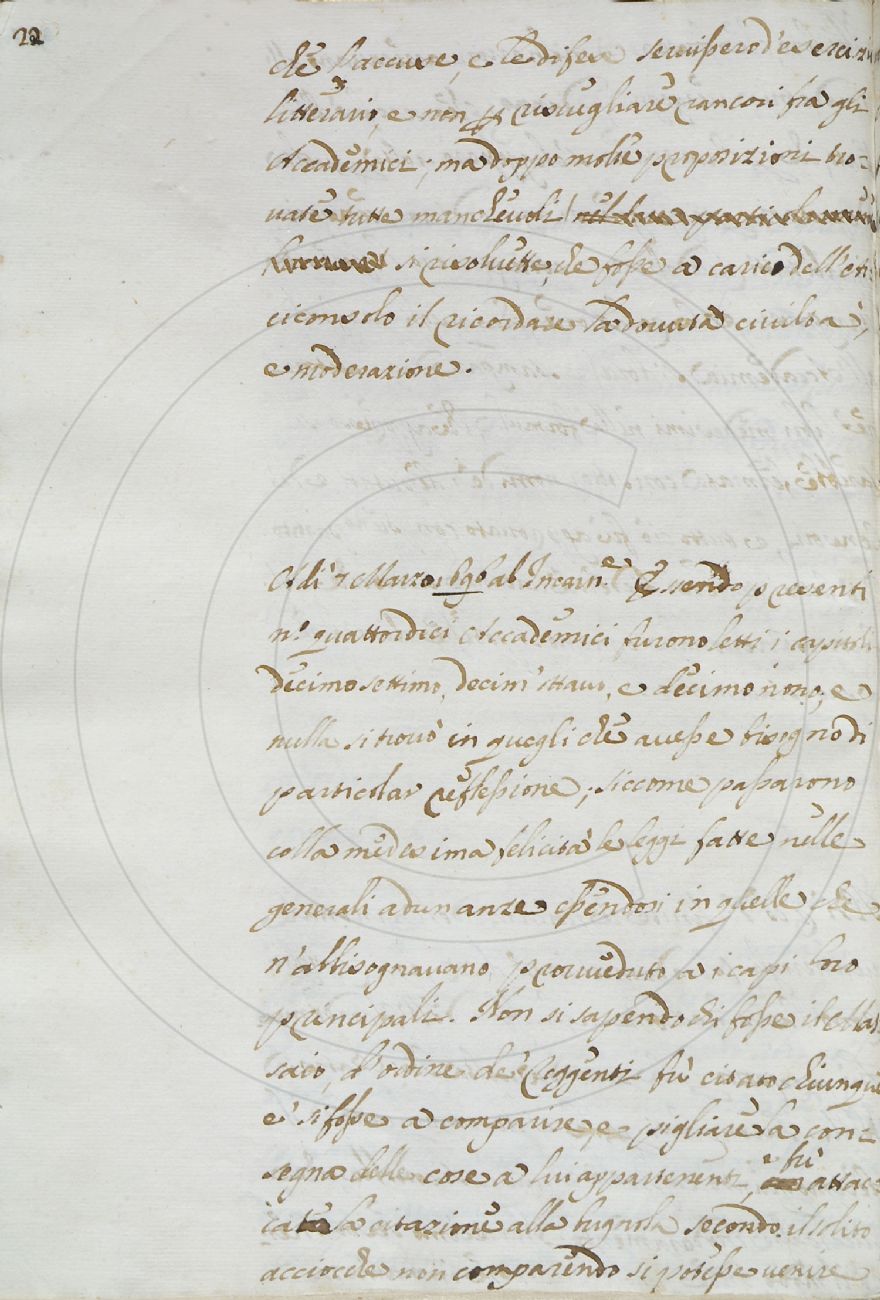 22
che l'accuse, e le difese servissero d'esercizio
litterario, e non p risvegliare rancori fra gli
Accademici; ma doppo molte proposizioni tro=
vate tutte manchevoli
si risolvette, che fosse a carico dell'Ar=
ciconsolo il ricordare la dovuta civiltà,
e moderazione.
Adì 7 Marzo 1696 ab Incarn.e Essendo presenti
n.o quattordici Accademici furono letti i capitoli
decimo settimo, decim'ottavo, e decimo nono, e
nulla si trovò in quegli che avesse bisogno di
particolar reflessione; siccome passarono
colla medesima felicità le leggi fatte nelle
generali adunanze essendosi in quelle che
n'abbisognavano provveduto a i capi loro
principali. Non si sapendo chi fosse il Mas=
saio, d'ordine de' Reggenti fù citato chiunque
e' si fosse a comparire, e pigliare la con=
segna delle cose a lui appartenenti, e fù attac=
cata la citazione alla bugnola secondo il solito
acciocche non comparendo si potesse venire